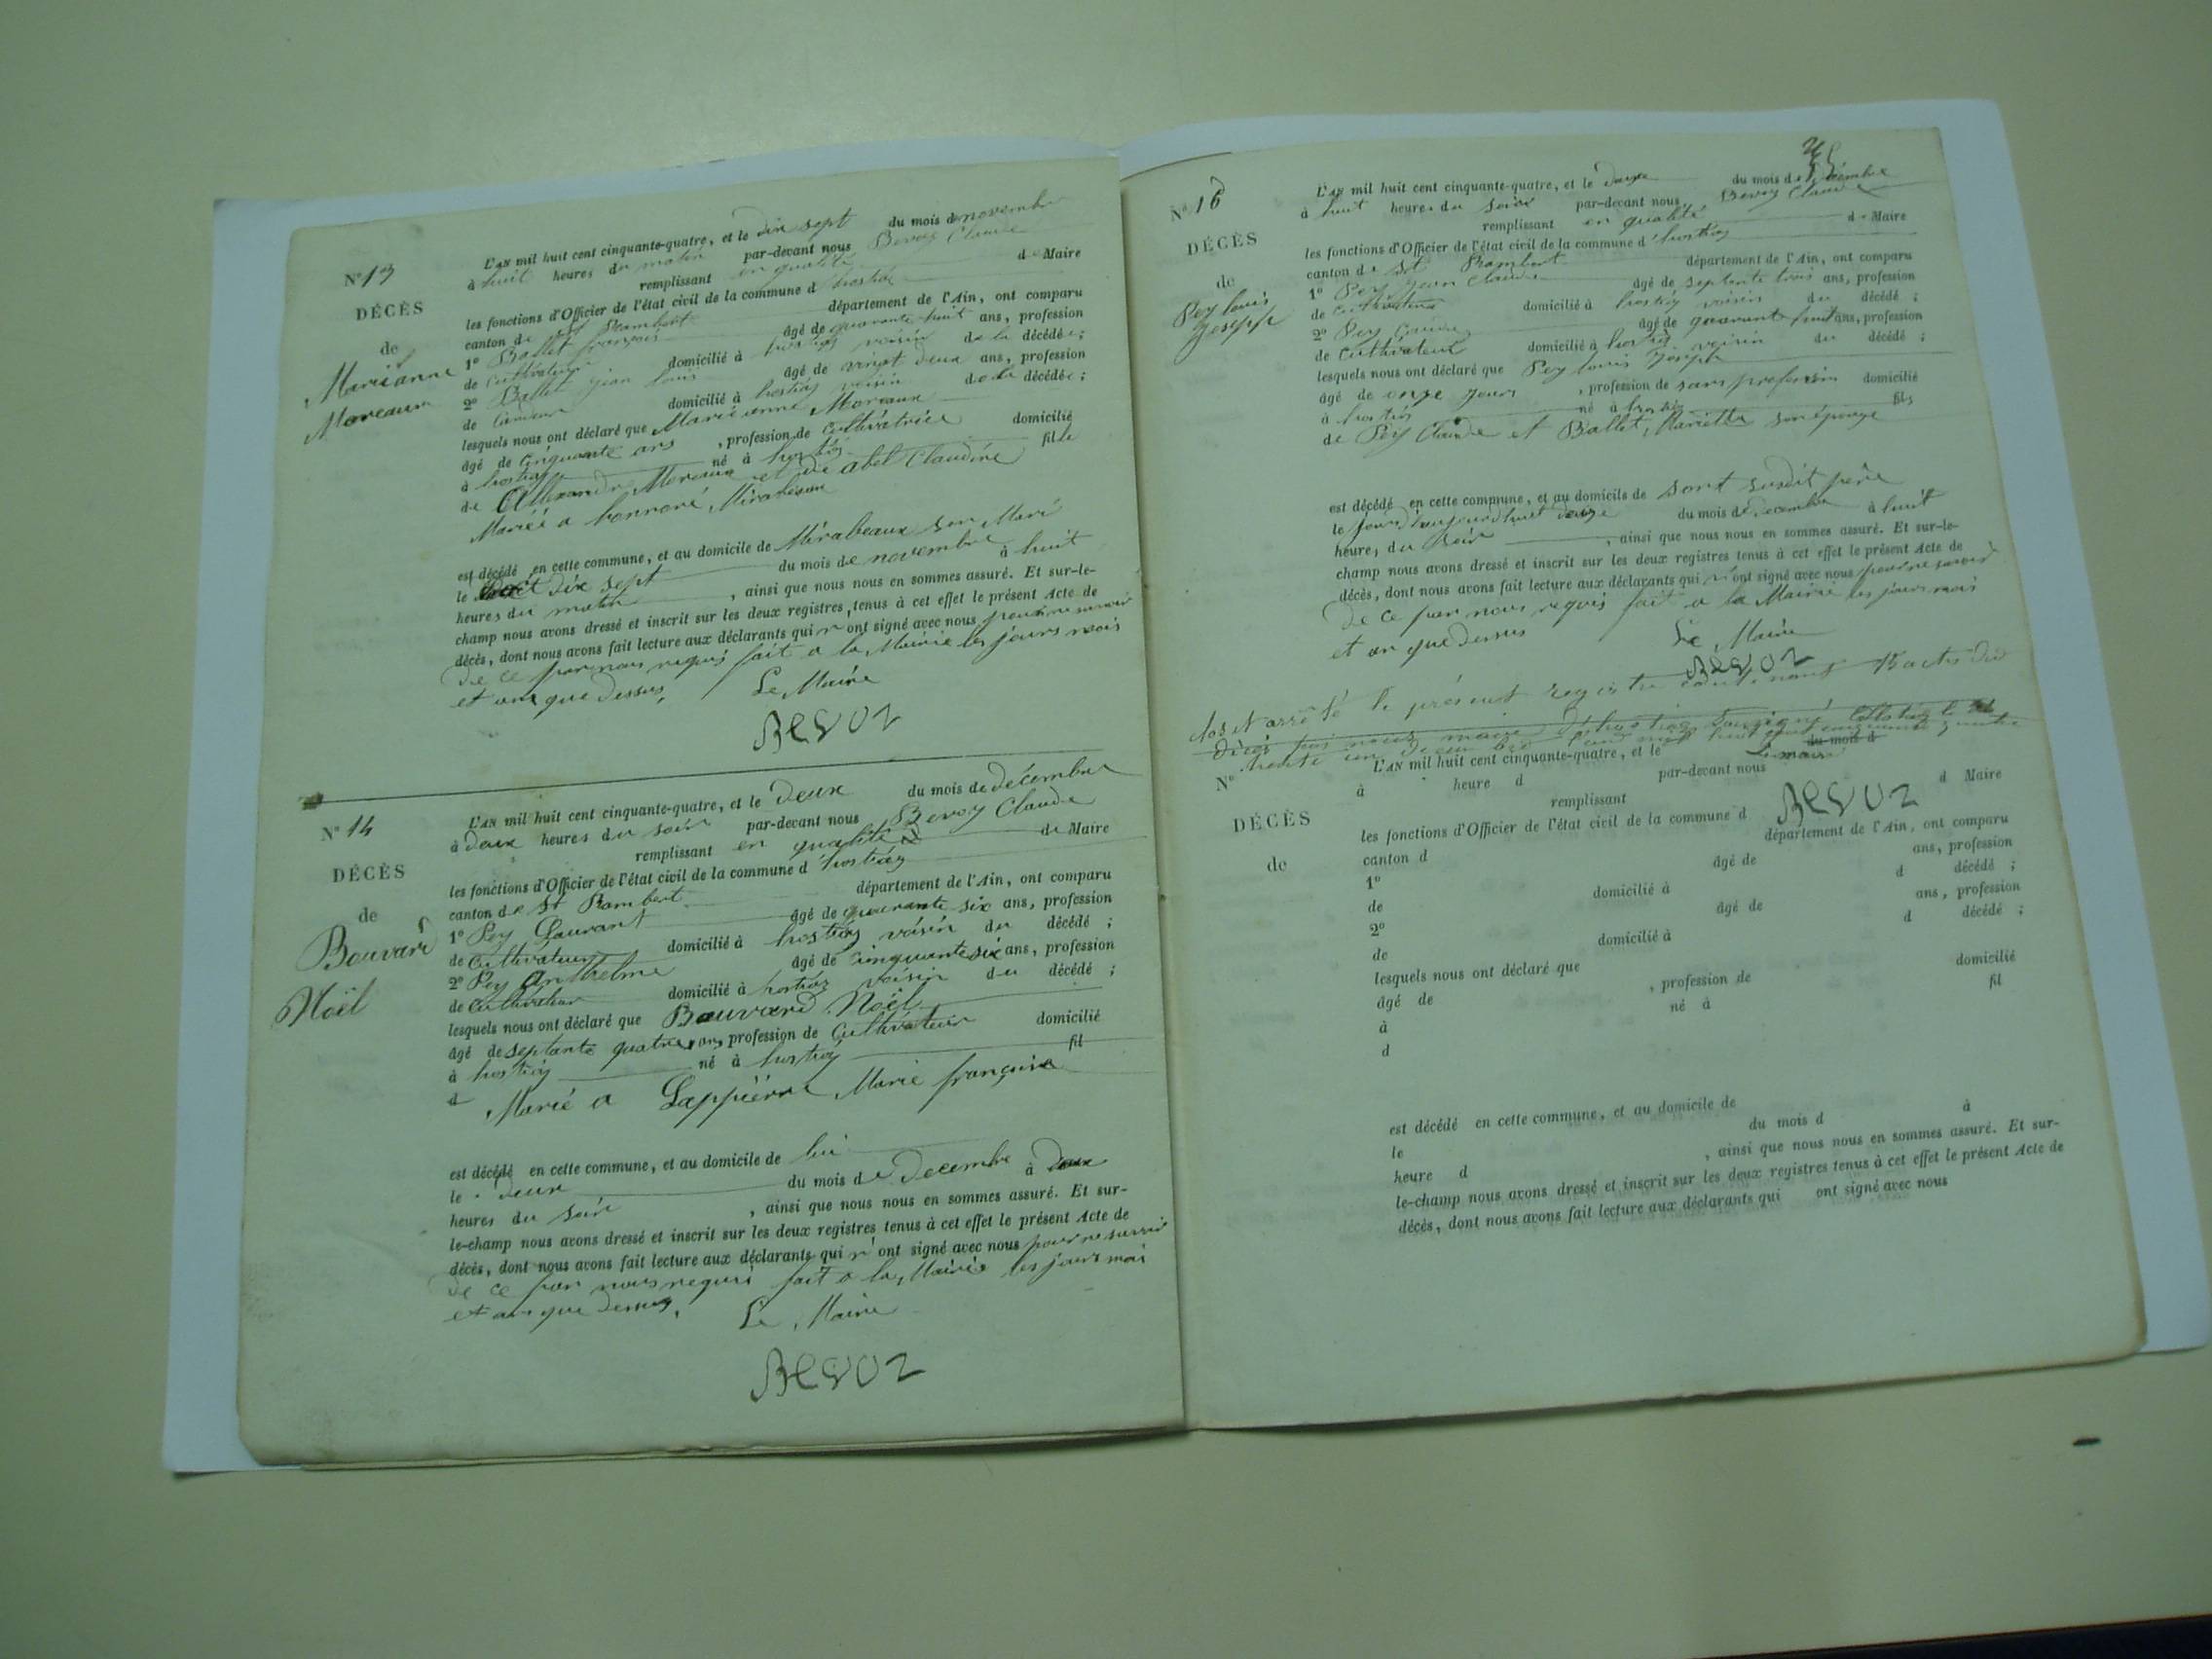 N° 13
DÉCÈS
de
Marianne
Moreaux
L'AN mil huit cent cinquante-quatre, et le dix sept du mois de novembre
à huit heures du matin par-devant nous Bevoz Claude
remplissant en qualité de Maire
les fonctions d'Officier de l'état civil de la commune d'hostiaz
canton de St Rambert département de l'Ain, ont comparu
1° Ballet françois âgé de quarante huit ans, profession
de cultivateur domicilié à hostiaz voisin de la décédée;
2° Ballet jean louis âgé de vingt deux ans, profession
de domicilié à hostiaz voisin de la décédée;
lesquels nous ont déclaré que Marianne Moreaux
âgé de cinquante ans, profession de cultivatrice domicilié
à hostiaz né à hostiaz fille
de Allexandre Moreaux et de abel Claudine
Mariée a honnoré Mirabeaux
est décédé en cette commune, et au domicile de Mirabeaux son Mari
le dix sept du mois de novembre à huit
heures du matin, ainsi que nous nous en sommes assuré. Et sur-le-
champ nous avons dressé et inscrit sur les deux registres, tenus à cet effet le présent Acte de
décès, dont nous avons fait lecture aux déclarants qui n'ont signé avec nous pour ne savoir
de ce par nous requis fait a la Mairie les jours mois
et an que dessus, Le Maire
Bevoz
N° 14
DÉCÈS
de
Bouvard
Noël
L'AN mil huit cent cinquante-quatre, et le deux du mois de décembre
à deux heures du soir par-devant nous Bevoz Claude
remplissant en qualité de Maire
les fonctions d'Officier de l'état civil de la commune d'hostiaz
canton de St Rambert département de l'Ain, ont comparu
1° Pey Laurant âgé de quarante six ans, profession
de cultivateur domicilié à hostiaz voisin du décédé;
2° Pey Anthelme âgé de cinquante six ans, profession
de cultivateur domicilié à hostiaz voisin du décédé;
lesquels nous ont déclaré que Bouvard Noël
âgé de septante quatre ans, profession de cultivateur domicilié
à hostiaz né à hostiaz fil
d Marié a Lappierre Marie françoise
est décédé en cette commune, et au domicile de lui
le deux du mois de decembre à deux
heures du soir, ainsi que nous nous en sommes assuré. Et sur-
le-champ nous avons dressé et inscrit sur les deux registres tenus à cet effet le présent Acte de
décès, dont nous avons fait lecture aux déclarants qui n'ont signé avec nous pour ne savoir
de ce par nous requis fait a la Mairie les jours mois
et an que dessus, Le Maire
Bevoz
N° 15
DÉCÈS
de
Pey louis
Joseph
L'AN mil huit cent cinquante-quatre, et le douze du mois de décembre
à huit heures du soir par-devant nous Bevoz Claude
remplissant en qualité de Maire
les fonctions d'Officier de l'état civil de la commune d'hostiaz
canton de St Rambert département de l'Ain, ont comparu
1° Pey Jean Claude âgé de septente trois ans, profession
de cultivateur domicilié à hostiaz voisin du décédé;
2° Pey Claude âgé de quarante huit ans, profession
de cultivateur domicilié à hostiaz voisin du décédé;
lesquels nous ont déclaré que Pey louis Joseph
âgé de onze jours, profession de sans profession domicilié
à hostiaz né à hostiaz fils
de Pey Claude et Ballet, Mariette son épouge
est décédé en cette commune, et au domicile de sont susdit père
le jours daujourdhuit douze du mois de decembre à huit
heures du soir, ainsi que nous nous en sommes assuré. Et sur-le-
champ nous avons dressé et inscrit sur les deux registres tenus à cet effet le présent Acte de
décès, dont nous avons fait lecture aux déclarants qui n'ont signé avec nous pour ne savoir
de ce par nous requis fait a la Mairie les jours mois
et an que dessus Le Maire
Bevoz
Clos et arrêté le présent registre contenant 15 actes de
décès par nous maire d'hostiaz soussigné
trente un décembre mil huit cent cinquante quatre
Le maire
Bevoz
N°
DÉCÈS
de
L'AN mil huit cent cinquante-quatre, et le du mois d
à heure d par-devant nous
remplissant d Maire
les fonctions d'Officier de l'état civil de la commune d
canton d département de l'Ain, ont comparu
1° âgé de ans, profession
de domicilié à d décédé;
2° âgé de ans, profession
de domicilié à d décédé;
lesquels nous ont déclaré que
âgé de, profession de domicilié
à né à fil
d
est décédé en cette commune, et au domicile de
le du mois d à
heure d, ainsi que nous nous en sommes assuré. Et sur-
le-champ nous avons dressé et inscrit sur les deux registres tenus à cet effet le présent Acte de
décès, dont nous avons fait lecture aux déclarants qui ont signé avec nous